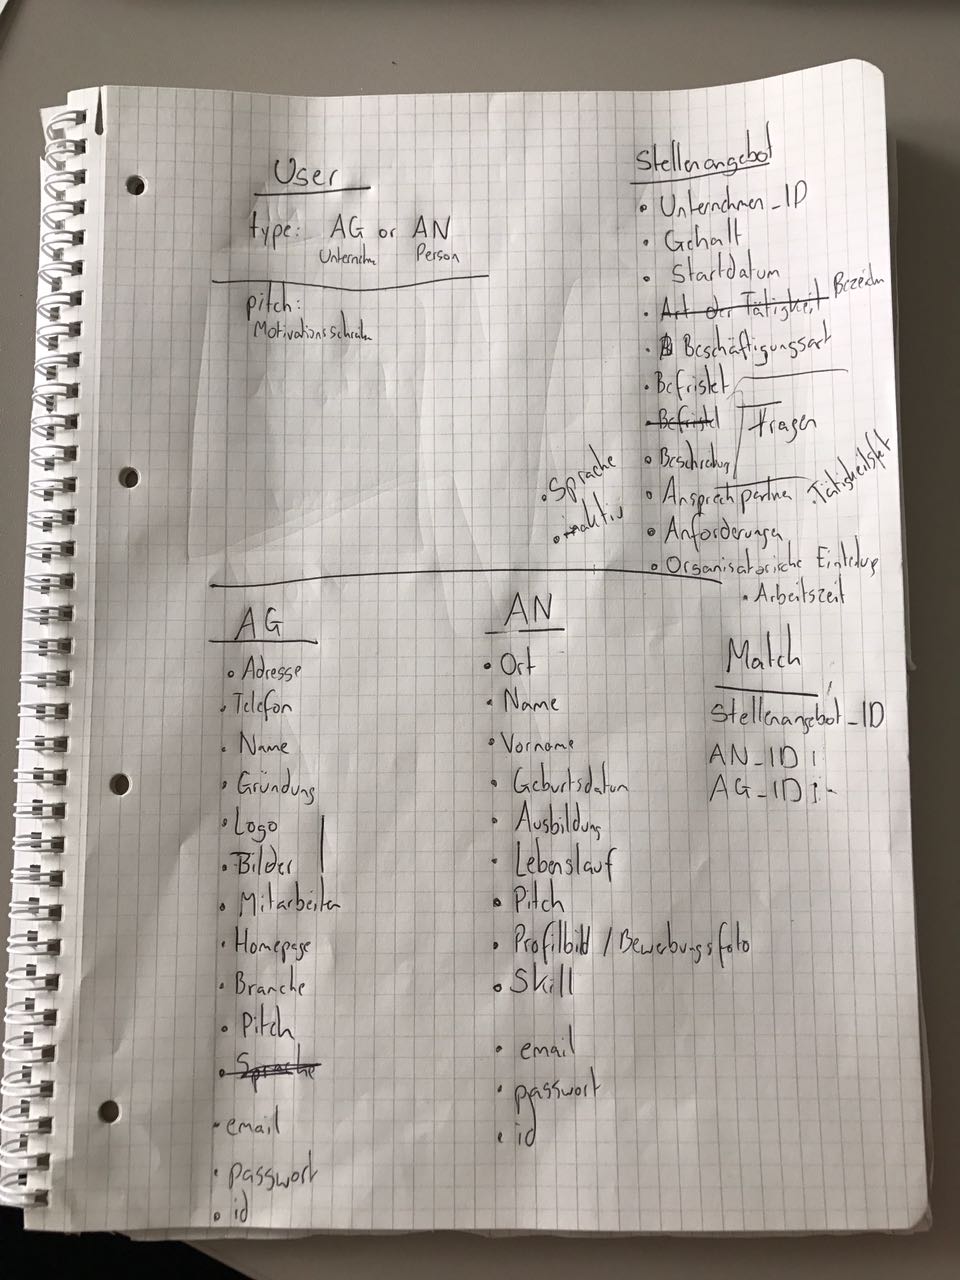 User
type: AG or AN
Unternehm Person
pitch:
Motivationsschreiben
Stellenangebot
• Unternehmen_ID
• Gehalt
• Startdatum
• Art der Tätigkeit Bezeichn
• Beschäftigungsart
• Befristet
• Befristet
Fragen
• Beschreibung
• Ansprechpartner
• Tätigkeits
• Anforderungen
• Organisatorische Einteilung
• Arbeitszeit
• Sprache
• inaktiv
AG
• Adresse
• Telefon
• Name
• Gründung
• Logo
• Bilder
• Mitarbeiter
• Homepage
• Branche
• Pitch
• Sprache
• email
• passwort
• id
AN
• Ort
• Name
• Vorname
• Geburtsdatum
• Ausbildung
• Lebenslauf
• Pitch
• Profilbild / Bewerbungsfoto
• Skill
• email
• passwort
• id
Match
Stellenangebot_ID
AN_ID
AG_ID